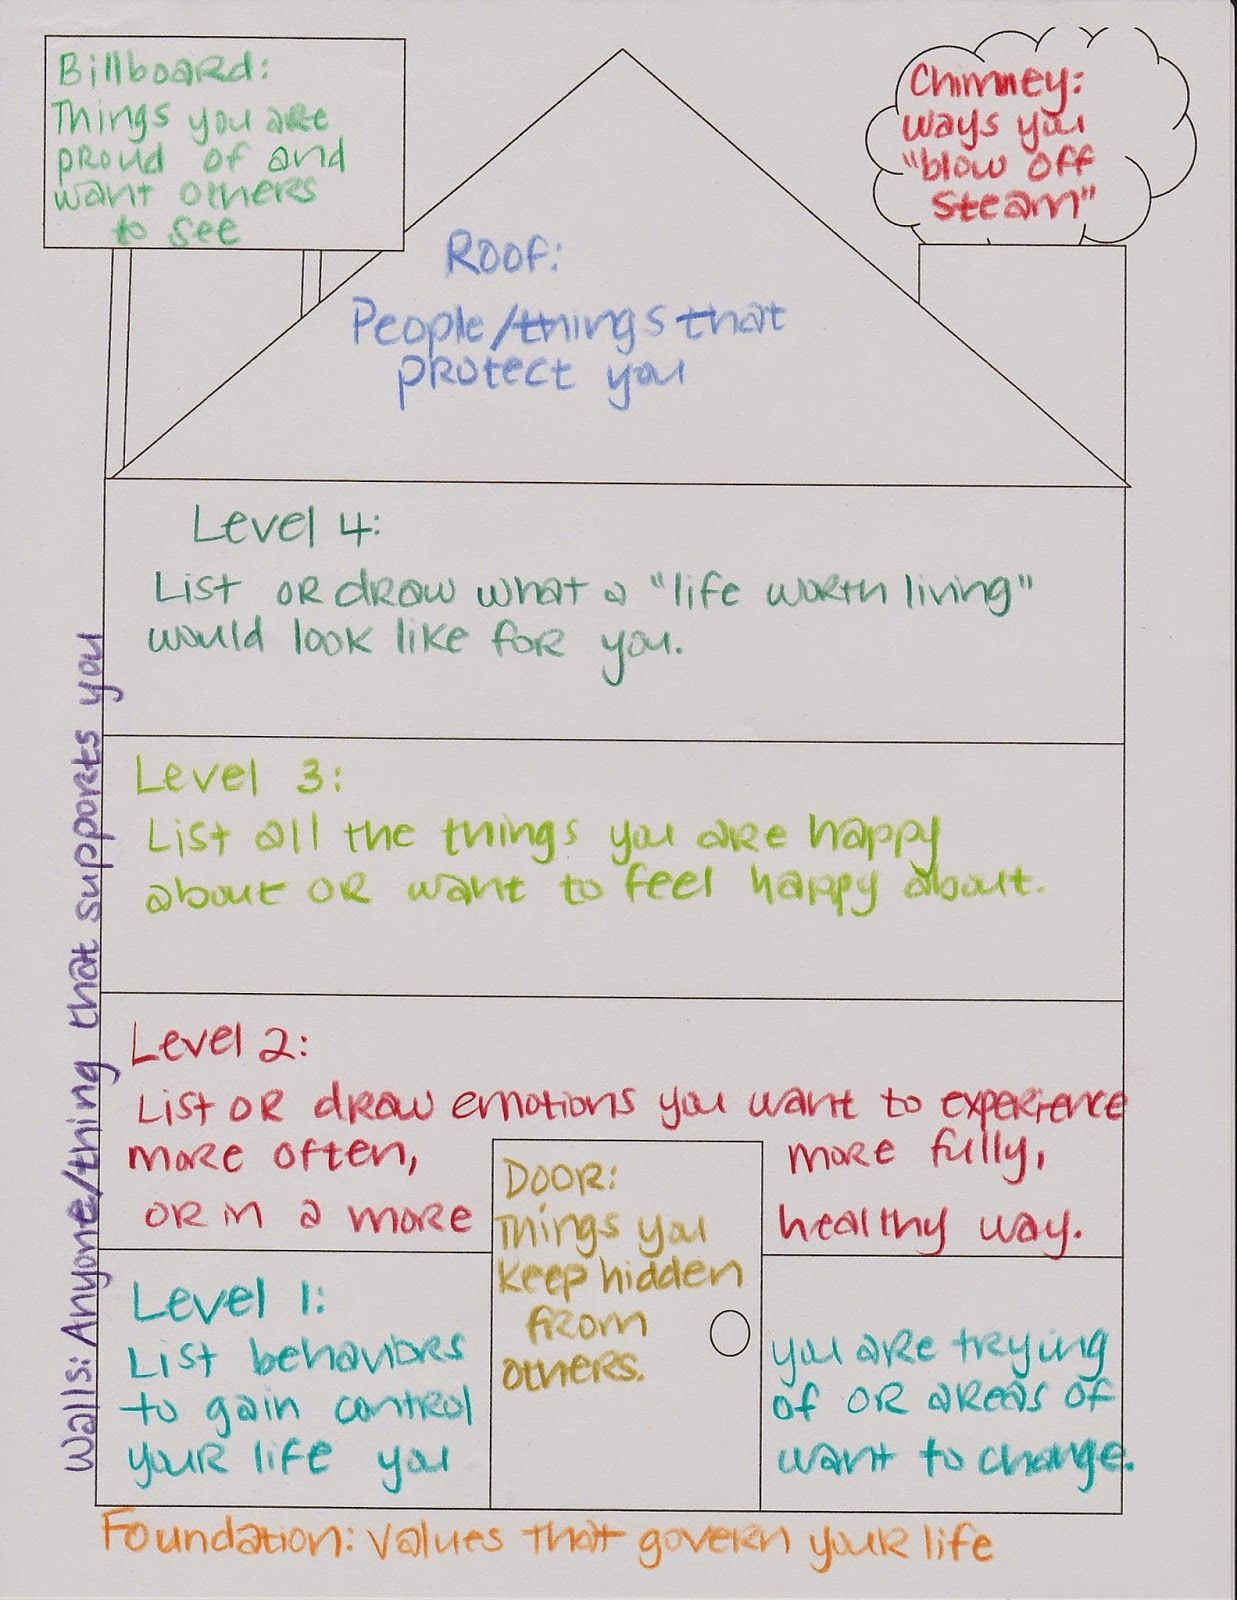 Billboard:
Things you are
proud of and
want others
to see
Chimney:
ways you
"blow off
steam"
Roof:
People/things that
protect you
Level 4:
List or draw what a "life worth living"
would look like for you.
Level 3:
List all the things you are happy
about or want to feel happy about.
Level 2:
List or draw emotions you want to experience
more often, more fully,
or in a more healthy way.
Door:
Things you
keep hidden
from
others.
Level 1:
List behaviors you are trying
to gain control of or areas of
your life you want to change.
Walls: Anyone/thing that supports you
Foundation: values that govern your life